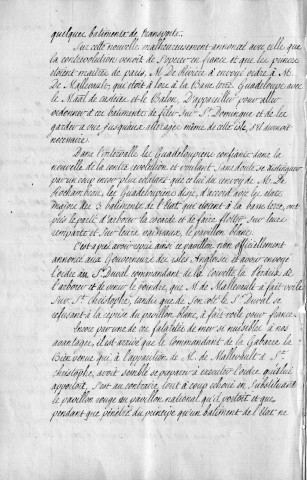 quelques batiments de transports.
Sur cette nouvelle malheureusement annoncé avec elle que
la contrerevolution venoit de s'operer en france et que les princes
etoient maitres de paris, M. De Riviere a envoyé ordre à M.
De Mallevault, qui étoit à lors à la Basse terre Guadeloupe avec
le Maréchal de castries et le Balon, D'appareiller pour aller
ordonner à ces batiments de filer sur St. Domingue et de les
garder a vue jusqu'aux attérages même de cette isle, s'il devenoit
necessaire.
Dans l'intervalle les Guadeloupiens confiants dans la
nouvelle de la contre revolution et voulant sans doute se distinguer
par un coup encor plus eclatant que celui du renvoy de M. De
Rochambeau, les Guadeloupiens dis-je, d'accord avec les etats
majors des 3 batiments de l'état qui etoient à la basse terre, ont
pris le parti d'arborer la cocarde et de faire flotter sur leurs
remparts et sur leurs vaisseaux, le pavillon blanc.
C'est après avoir repris ainsi ce pavillon, non officiellement
annoncé aux Gouverneurs des isles Angloises et avoir envoyé
l'ordre au Sr. Duval commandant de la Corvette la perdrix de
l'arborer et de venir le joindre, que M. de Mallevault a fait voile
sur St. Christophe, tandis que de son coté le Sr. Duval se
refusant à la reprise du pavillon blanc, à fait voile pour france.
Encore par une de ces fatalités de mer si nuisibles à nos
avantages, il est arrivé que le Commandant de la Gabarre la
Bien venue qui, à l'apparition de M. de Mallevault à St.
christophe, avoit semblé se preparer à executer l'ordre qu'il lui
apportoit, s'est au contraire tout à coup echoué en substituant
le pavillon rouge au pavillon national qu'il portoit et que
pendant que pénétré du principe qu'un batiment de l'état ne